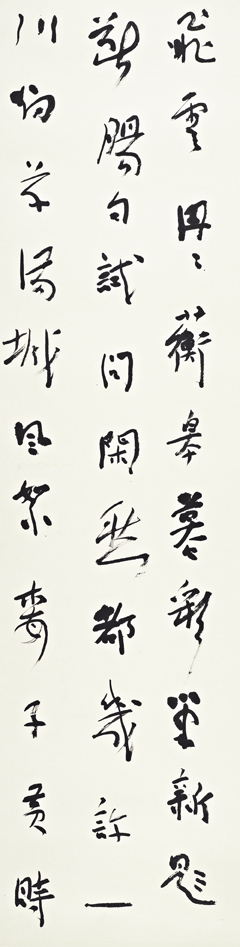 飛雲冉〻蘅皋暮彩筆新題
斷腸句試問閑愁都幾許一
川烟草滿城風絮梅子黃時